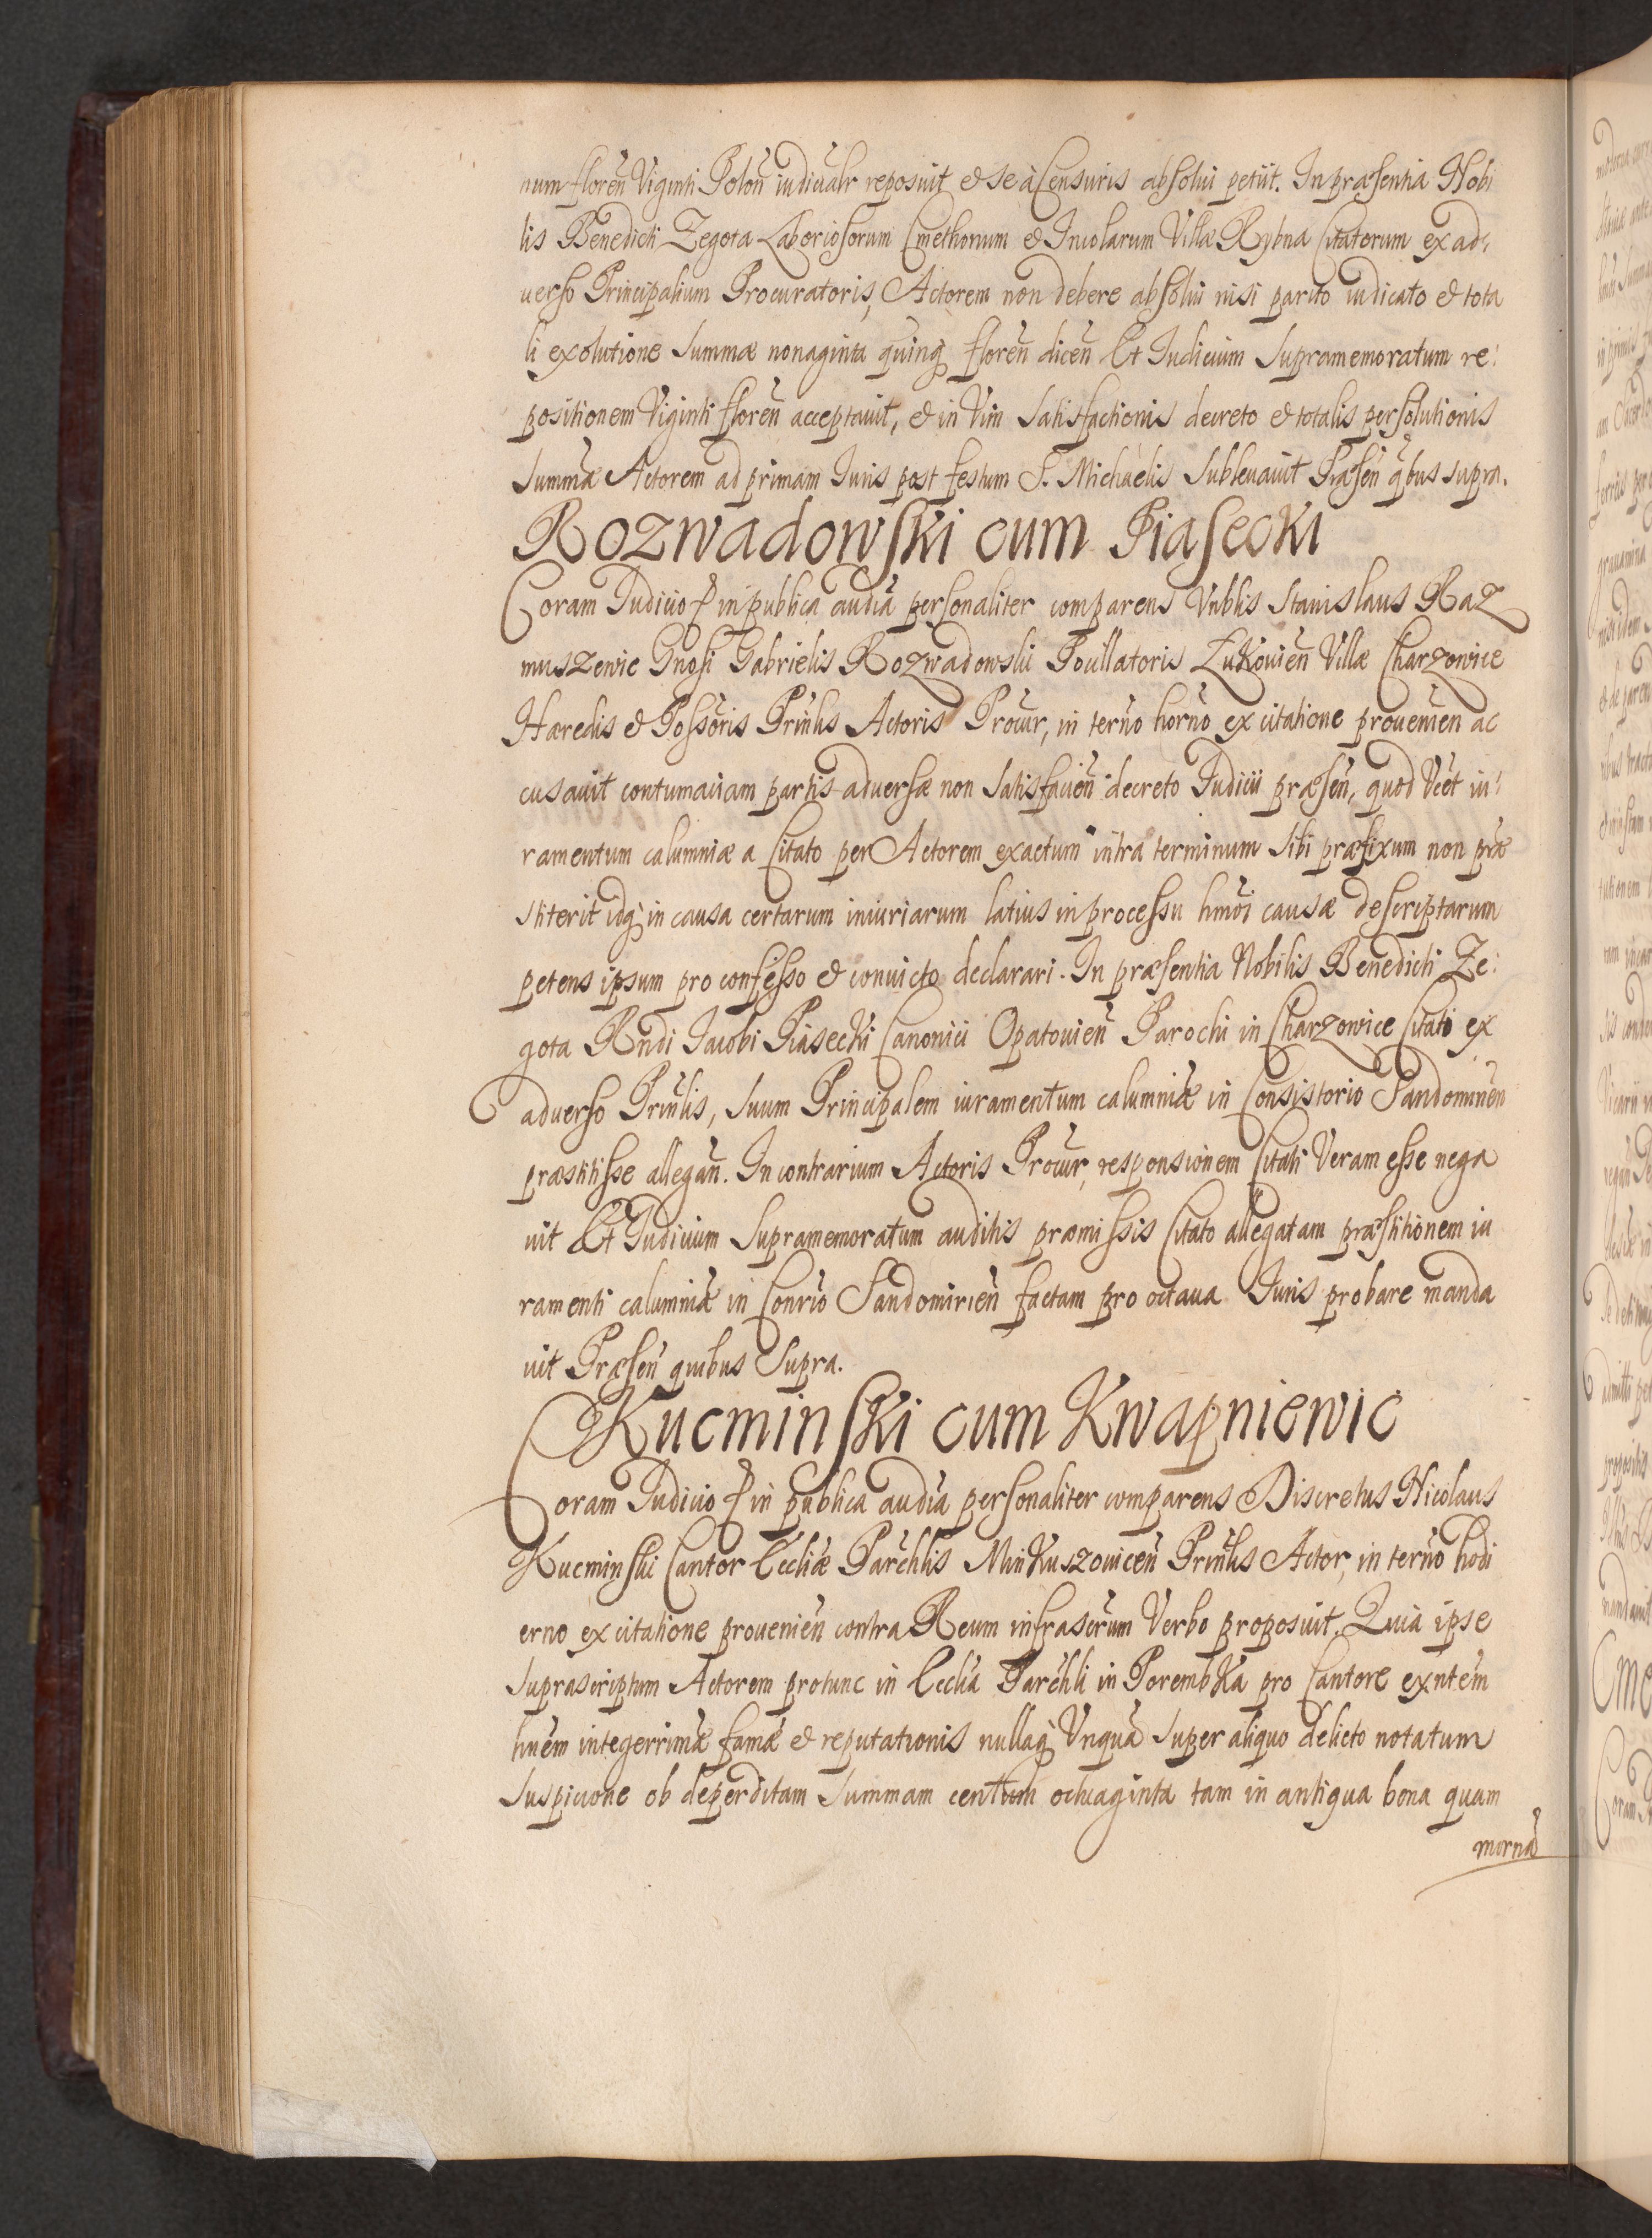 num floreñ Viginti Poloñ iudicialr reposuit et se à Censuris absolui petijt. In præsentia Nobi
lis Benedicti Zegota Laboriosorum Cmethonum et Incolarum Villæ Rybna Citatorum ex ad,
uerso Principalium Procuratoris, Actorem non debere absolui nisi parito iudicato et tota
li exolutione summæ nonaginta quinq floreñ diceñ Et Iudicium supramemoratum re:
positionem Viginti floreñ acceptauit, et in Vim satisfactionis decreto et totalis persolutionis
summæ Actorem ad primam Iuris post festum S. Michaelis subleuauit Præseñ qbus supra.
Rozwadowski cum Piasecki
Coram Iudicio in publica audiã personaliter comparens Vnblis Stanislaus Raz
muszewic Gnosi Gabrielis Rozwadowski Pocillatoris Lukouieñ Villæ Charzowice
Hæredis et Possoris Prinlis Actoris Procur, in terno horno ex citatione prouenien ac
cusauit contumaciam partis aduersæ non satisfacieñ decreto Iudicii præseñ, quod Vcet iu:
ramentum calumniæ a Citato per Actorem exactum intra terminum sibi præfixum non præ
stiterit idq in causa certarum iniuriarum latius in processu hmõi causæ descriptarum
petens ipsum pro confesso et conuicto declarari. In præsentia Nobilis Benedicti Ze:
gota Rndi Iacobi Piasecki Canonici Opatouieñ Parochi in Charzowice Citati ex
aduerso Prinlis, suum Principalem iuramentum calumniæ in Consistorio Sandomirieñ
præstitisse allegañ. In contrarium Actoris Procur, responsionem Citati Veram esse nega
uit Et Iudicium supramemoratum auditis præmissis Citato allegatam præstitionem iu
ramenti calumniæ in Conrio Sandomirieñ factam pro octaua Iuris probare manda
uit Præseñ quibus supra.
Kucminski cum Kwapniewic
Coram Iudicio in publica audiã personaliter comparens Discretus Nicolaus
Kucminski Cantor Eccliæ Parchlis Minkuszouiceñ Prinlis Actor, in terno hodi
erno ex citatione prouenieñ contra Reum infrascrum Verbo proposuit. Quia ipse
suprascriptum Actorem protunc in Ecclia Parchli in Porembka pro Cantore exntem
hnem integerrimæ famæ et reputationis nullaq Vnquã super aliquo delicto notatum
suspicione ob deperditam summam centum octuaginta tam in antiqua bona quam
morna